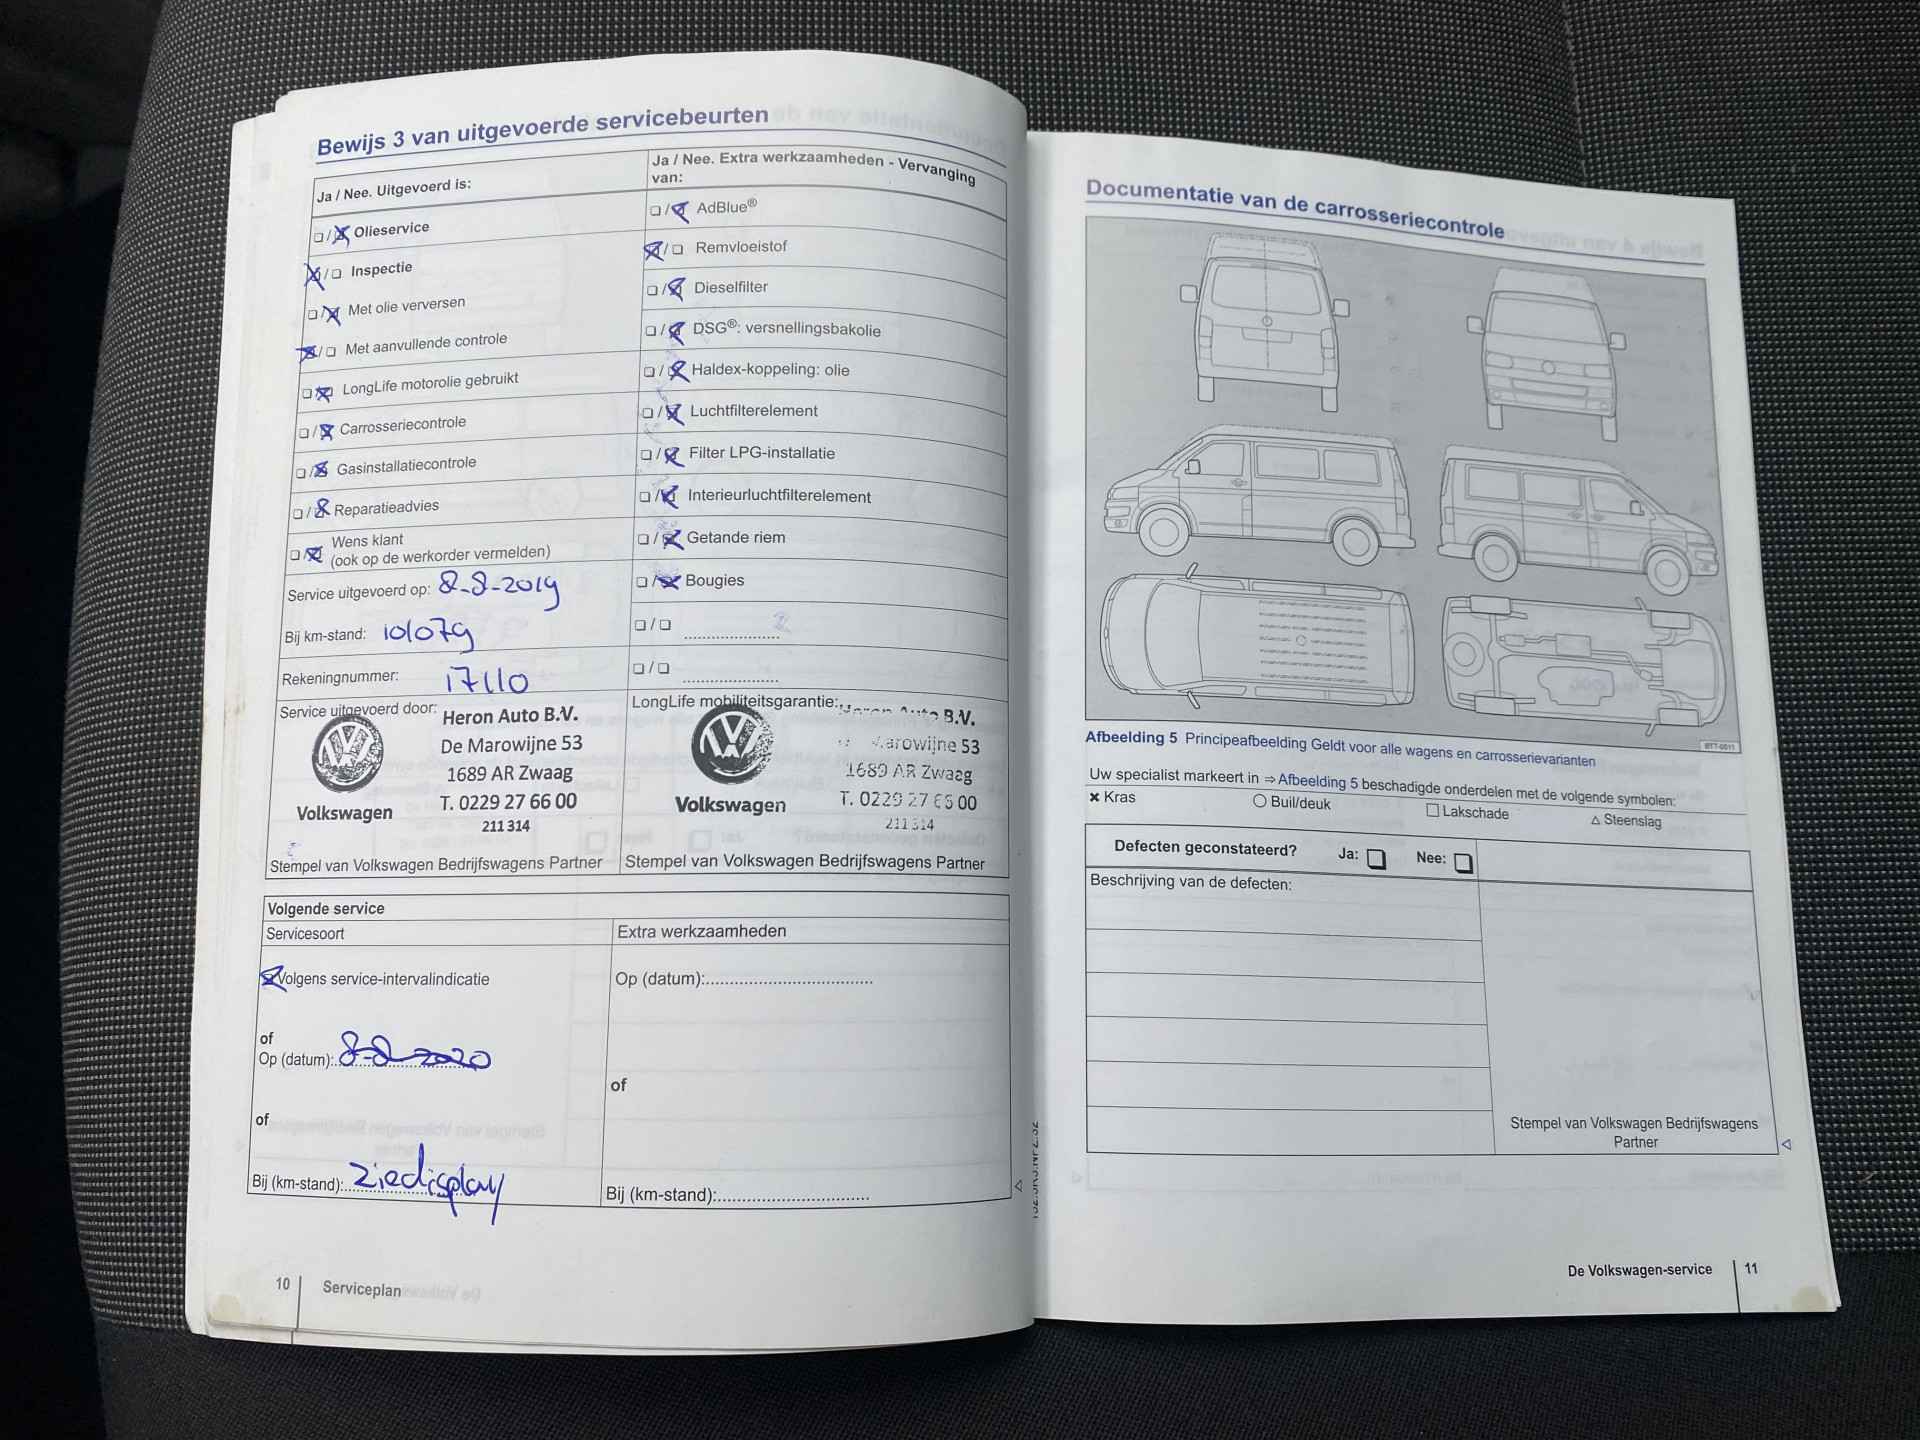 Bewijs 3 van uitgevoerde servicebeurten
Ja / Nee. Uitgevoerd is:
❏ / ☒ Olieservice
☒ / ❏ Inspectie
❏ / ☒ Met olie verversen
☒ / ❏ Met aanvullende controle
❏ / ☒ LongLife motorolie gebruikt
❏ / ☒ Carrosseriecontrole
❏ / ☒ Gasinstallatiecontrole
❏ / ☒ Reparatieadvies
❏ / ☒ Wens klant
(ook op de werkorder vermelden)
Service uitgevoerd op: 8-8-2019
Bij km-stand: 101079
Rekeningnummer: 17110
Service uitgevoerd door:
Heron Auto B.V.
De Marowijne 53
1689 AR Zwaag
T. 0229 27 66 00
211 314
Volkswagen
Stempel van Volkswagen Bedrijfswagens Partner
Ja / Nee. Extra werkzaamheden - Vervanging
van:
❏ / ☒ AdBlue®
☒ / ❏ Remvloeistof
❏ / ☒ Dieselfilter
❏ / ☒ DSG®: versnellingsbakolie
❏ / ☒ Haldex-koppeling: olie
❏ / ☒ Luchtfilterelement
❏ / ☒ Filter LPG-installatie
❏ / ☒ Interieurluchtfilterelement
❏ / ☒ Getande riem
❏ / ☒ Bougies
❏ / ❏ .....................
❏ / ❏ .....................
LongLife mobiliteitsgarantie:
Heron Auto B.V.
Marowijne 53
1689 AR Zwaag
T. 0229 27 66 00
211 314
Volkswagen
Stempel van Volkswagen Bedrijfswagens Partner
Volgende service
Servicesoort
☒ Volgens service-intervalindicatie
of
Op (datum): 8-8-2020
of
Bij (km-stand): ziedisplay
Extra werkzaamheden
Op (datum):....................................
of
Bij (km-stand):.................................
10 Serviceplan
Documentatie van de carrosseriecontrole
BTT-0511
Afbeelding 5 Principeafbeelding Geldt voor alle wagens en carrosserievarianten
Uw specialist markeert in ⇒ Afbeelding 5 beschadigde onderdelen met de volgende symbolen:
✖ Kras ◯ Buil/deuk ☐ Lakschade △ Steenslag
Defecten geconstateerd? Ja: ❏ Nee: ❏
Beschrijving van de defecten:
Stempel van Volkswagen Bedrijfswagens
Partner
De Volkswagen-service 11